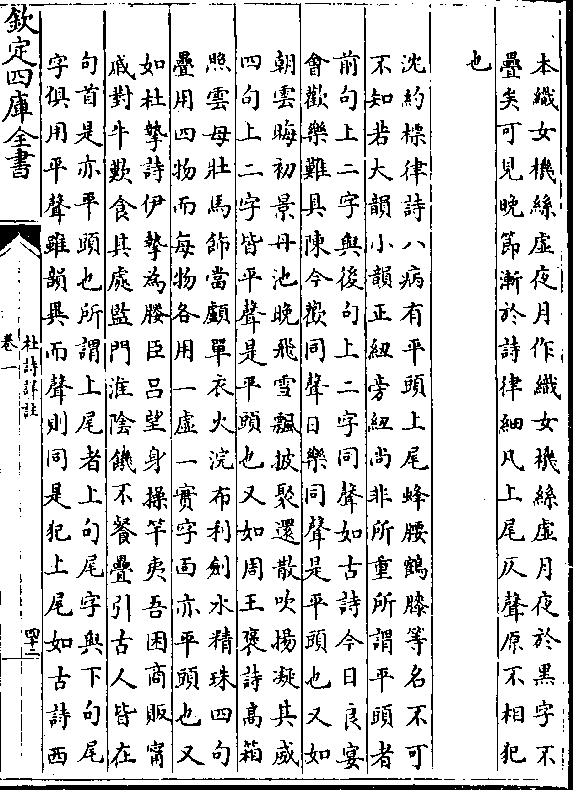 本織女機絲虛夜月作織女機絲虛月夜於黑字不
疊矣可見晚節漸於詩律細凡上尾仄聲原不相犯
也
沈約標律詩八病有平頭上尾蜂腰鶴膝等名不可
不知若大韻小韻正紐旁紐尚非所重所謂平頭者
前句上二字與後句上二字同聲如古詩今日良宴
會歡樂難具陳今歡同聲日樂同聲是平頭也又如
朝雲晦初景丹池晚飛雪飄披聚還散吹揚凝其威
四句上二字皆平聲是平頭也又如周王褒詩高箱
照雲母壯馬飾當顱單衣火浣布利劍水精珠四句
疊用四物而每物各用一虛一實字面亦平頭也又
如杜摯詩伊摯為媵臣呂望身操竿夷吾困商販甯
戚對牛歎食其處監門淮陰饑不餐疊引古人皆在
句首是亦平頭也所謂上尾者上句尾字與下句尾
字俱用平聲雖韻異而聲則同是犯上尾如古詩西
欽定四庫全書
杜詩詳註
卷一